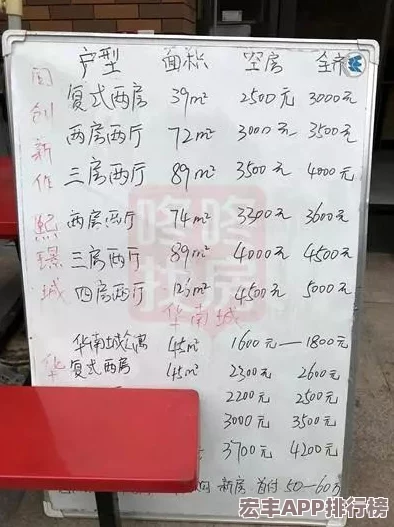 户型 面积 空房 全齐
复式两房 39m² 2500元 3000元
两房两厅 72m² 3000元 3500元
三房两厅 89m² 3500元 4000元
两房两厅 74m² 3300元 3600元
三房两厅 89m² 4000元 4500元
四房两厅 4500元 5000元
华南城
华南城公寓 45m² 1600元—1800元
复式两房 45m² 2300元 2600元
2200元 2500元
3000元 3500元
3700元 4200元
新房 首付 50-60万
创新作
熙璟城
华
咚咚找房
宏丰APP排行榜